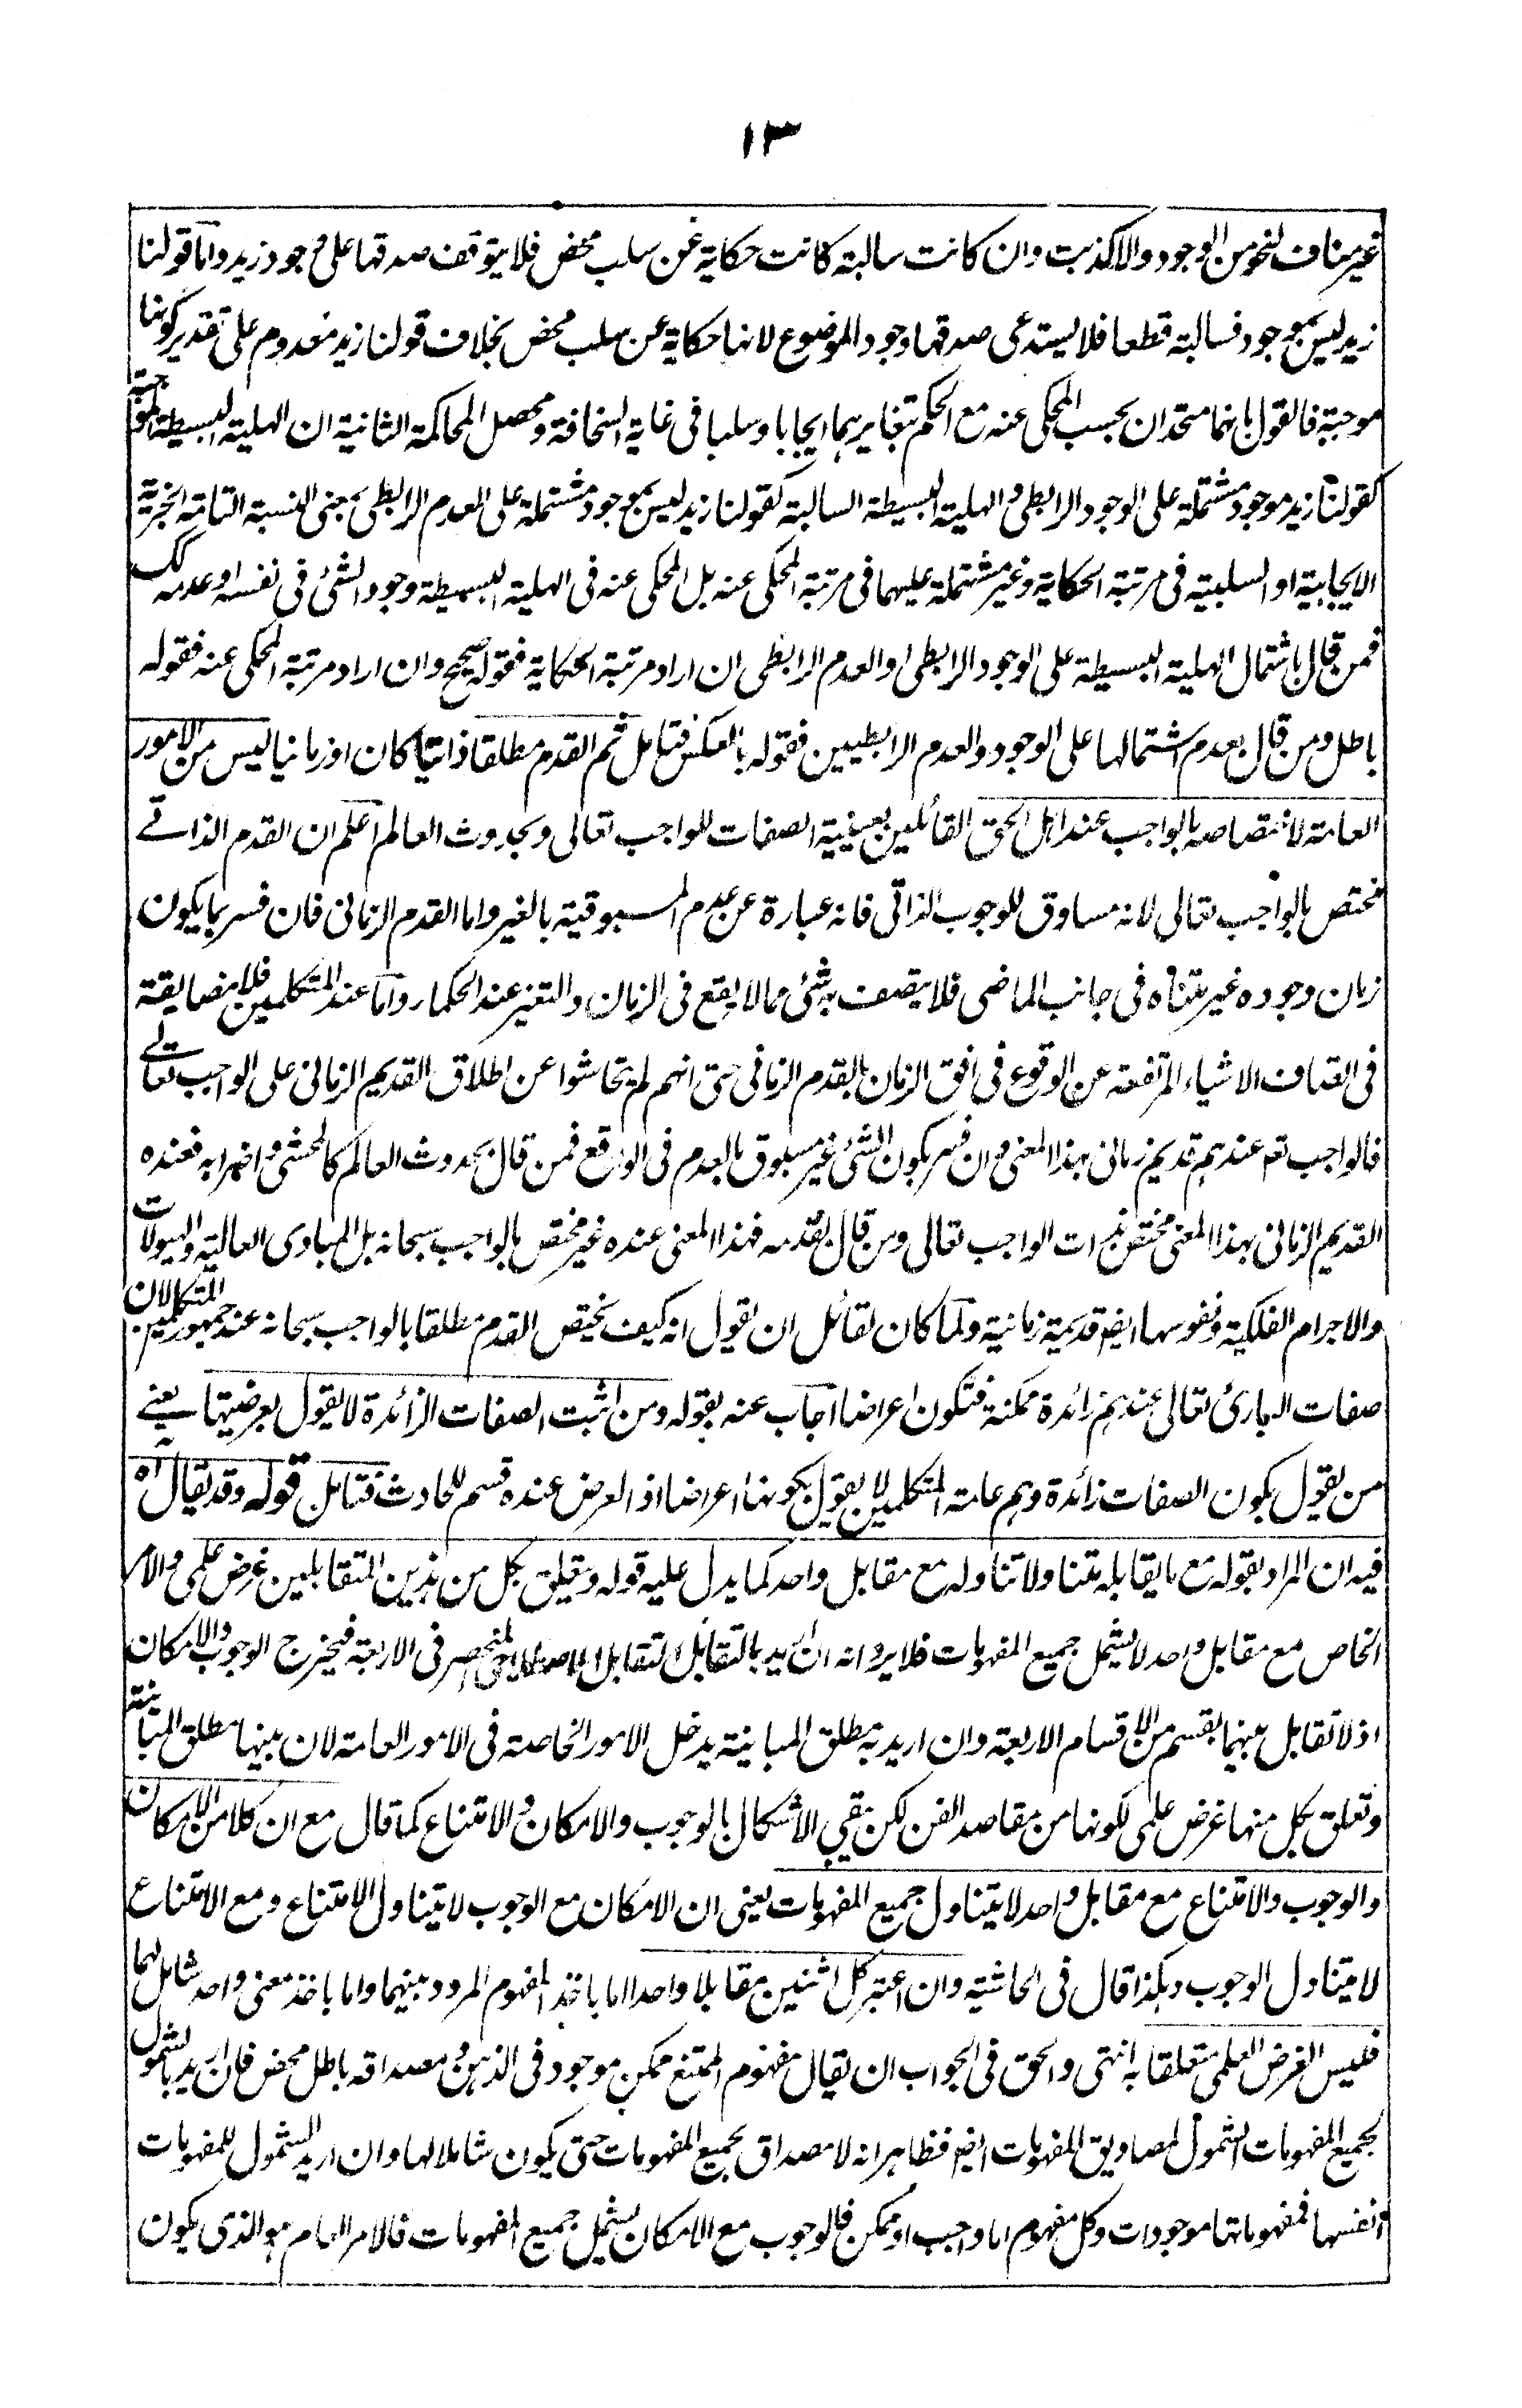 ١٣
غير مناف لنحو من الوجود والا كذبت وان كانت سالبة كانت حكاية عن سلب محض فلا يتوقف صدقها على وجود زيد واما قولنا
زيد ليس بموجود فسالبة قطعا فلا يستدعى صدقها وجود الموضوع لانها حكاية عن سلب محض بخلاف قولنا زيد معدوم على تقدير كونها
موجبة فالقول بانهما متحدان بحسب المحكى عنه مع الحكم بتغايرهما ايجابا وسلبا فى غاية السخافة ومحصل المحاكمة الثانية ان الهلية البسيطة الموجبة
كقولنا زيد موجود مشتملة على الوجود الرابطى والهلية البسيطة السالبة كقولنا زيد ليس بموجود مشتملة على العدم الرابطى بمعنى النسبة التامة الخبرية
الايجابية او السلبية فى مرتبة الحكاية وغير مشتملة عليهما فى مرتبة المحكى عنه بل المحكى عنه فى الهلية البسيطة وجود الشئ فى نفسه او عدمه كك
فمن قال باشتمال الهلية البسيطة على الوجود الرابطى او العدم الرابطى ان اراد مرتبة الحكاية فقوله صحيح وان اراد مرتبة المحكى عنه فقوله
باطل ومن قال بعدم اشتمالها على الوجود والعدم الرابطيين فقوله بالعكس فتامل ثم القدم مطلقا ذاتيا كان او زمانيا ليس من الامور
العامة لاختصاصه بالواجب عند اهل الحق القائلين بعينية الصفات للواجب تعالى وبحدوث العالم اعلم ان القدم الذاتے
مختص بالواجب تعالى لانه مساوق للوجوب الذاتى فانه عبارة عن عدم المسبوقية بالغير واما القدم الزمانى فان فسر بما يكون
زمان وجوده غير متناه فى جانب الماضى فلا يتصف به شئ مما لا يقع فى الزمان والتغير عند الحكماء واما عند المتكلمين فلا مضايقة
فى اتصاف الاشياء المرتفعة عن الوقوع فى افق الزمان بالقدم الزمانى حتى انهم لم يتحاشوا عن اطلاق القديم الزمانى على الواجب تعالے
فالواجب تعم عندهم قديم زمانى بهذا المعنى وان فسر بكون الشئ غير مسبوق بالعدم فى الواقع فمن قال بحدوث العالم كالمحشى واضرابه فعنده
القديم الزمانى بهذا المعنى مختص بذات الواجب تعالى ومن قال بقدمه فهذا المعنى عنده غير مختص بالواجب سبحانه بل المبادى العالية والهيولات
والاجرام الفلكية ونفوسها ايضا قديمة زمانية ولما كان لقائل ان يقول انه كيف يختص القدم مطلقا بالواجب سبحانه عند جمهور المتكلمين لان
صفات البارئ تعالى عندهم زائدة ممكنة فتكون اعراضا اجاب عنه بقوله ومن اثبت الصفات الزائدة لا يقول بعرضيتها يعنے
من يقول بكون الصفات زائدة وهم عامة المتكلمين لا يقول بكونها اعراضا اذ العرض عنده قسم للحادث فتامل قوله وقد يقال اه
فيه ان المراد بقوله مع ما يقابله متناولا تناوله مع مقابل واحد كما يدل عليه قوله وتعلق بكل من هذين المتقابلين غرض علمى والامر
الخاص مع مقابل واحد لا يشمل جميع المفهومات فلا يرد انه ان اريد بالتقابل التقابل الاصطلاحى المنحصر فى الاربعة فيخرج الوجوب والامكان
اذ لا تقابل بينهما بقسم من الاقسام الاربعة وان اريد به مطلق المباينة يدخل الامور الخاصة فى الامور العامة لان بينها مطلق المباينة
وتعلق بكل منها غرض علمى لكونها من مقاصد الفن لكن بقى الاشكال بالوجوب والامكان والامتناع كما قال مع ان كلا من الامكان
والوجوب والامتناع مع مقابل واحد لا يتناول جميع المفهومات يعنى ان الامكان مع الوجوب لا يتناول الامتناع ومع الامتناع
لا يتناول الوجوب وهكذا قال فى الحاشية وان اعتبر كل اثنين مقابلا واحدا اما باخذ المفهوم المردد بينهما واما باخذ معنى واحد شامل لهما
فليس الغرض العلمى متعلقا به انتهى والحق فى الجواب ان يقال مفهوم الممتنع ممكن موجود فى الذهن ومصداقه باطل محض فان اريد بالشمول
لجميع المفهومات الشمول لمصاديق المفهومات ايضا فظاهر انه لا مصداق لجميع المفهومات حتى يكون شاملا لها وان اريد الشمول للمفهومات
انفسها فمفهوماتها موجودات وكل مفهوم اما واجب او ممكن فالوجوب مع الامكان يشمل جميع المفهومات فالامر العام هو الذى يكون